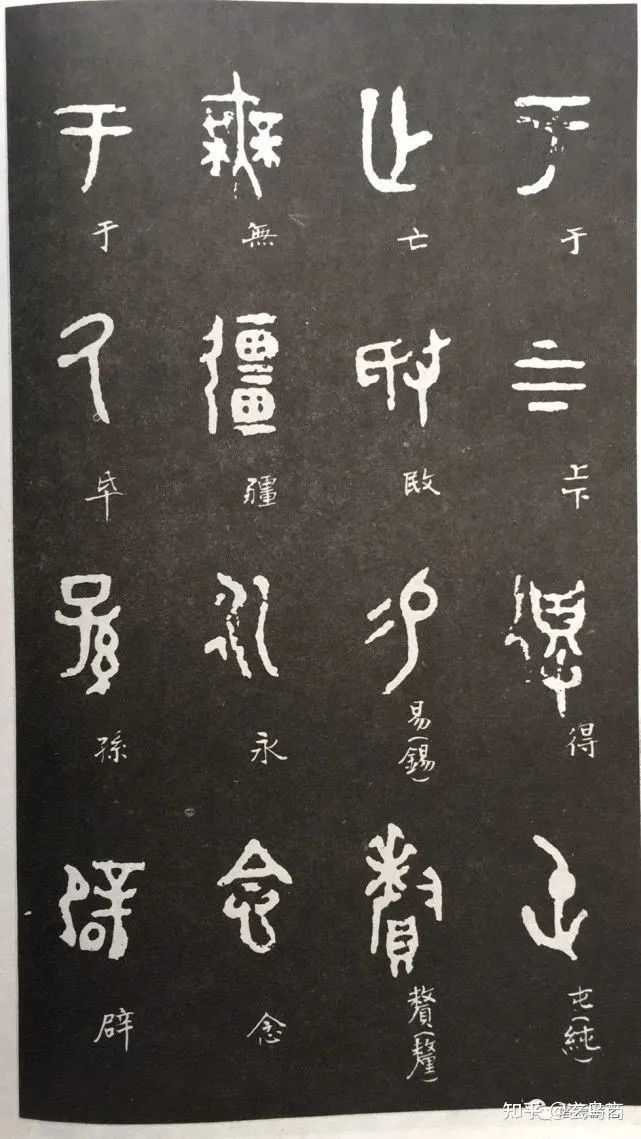 于 上下 得 屯(純)
亡 敃 易(錫) (釐)
無 疆 永 念
于 氒 孫 辟
知乎